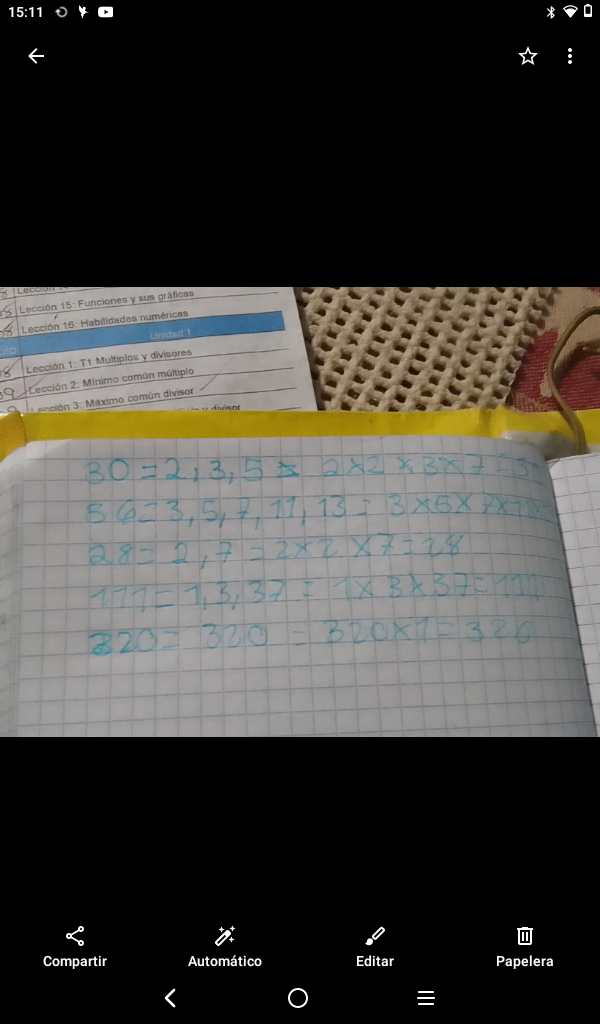 15:11
Lección 15: Funciones y sus gráficas
Lección 16: Habilidades numéricas
Unidad 1
Lección 1: T1 Multiplos y divisores
Lección 2: Mínimo común múltiplo
Lección 3: Máximo común divisor
y divisor
30 = 2, 3, 5 = 2x2 x 3x7 = 3
56= 3, 5, 7, 11, 13 = 3x5x7x11x
28= 2, 7 = 2x2 x7=28
111= 1,3, 37 = 1x3x37= 111
320= 320 = 320x1= 320
Compartir
Automático
Editar
Papelera